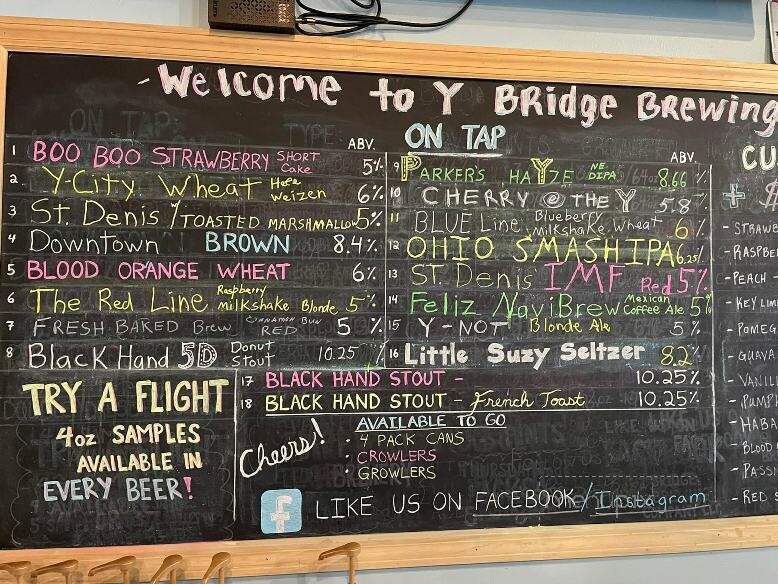 -Welcome to Y BRidge BRewing
ON TAP
ABV.
1 BOO BOO STRAWBERRY SHORT Cake 5%
2 Y-City Wheat Hefe Weizen 6%
3 St. Denis / TOASTED MARSHMALLOW 5%
4 Downtown BROWN 8.4%
5 BLOOD ORANGE WHEAT 6%
6 The Red Line Raspberry milkshake Blonde 5%
7 FRESH BAKED Brew CINNAMON Bun RED 5%
8 Black Hand 5D Donut Stout 10.25%
ABV.
9 PARKER'S HAYZE NE DIPA 8.66%
10 CHERRY @ THE Y 5.8%
11 BLUE Line Blueberry Milkshake Wheat 6%
12 OHIO SMASH IPA 6.25%
13 ST. Denis IMF Red 5%
14 Feliz NaviBrew Mexican Coffee Ale 5%
15 Y-NOT Blonde Ale 5%
16 Little Suzy Seltzer 8.2%
17 BLACK HAND STOUT - 10.25%
18 BLACK HAND STOUT - French Toast 10.25%
TRY A FLIGHT
4oz SAMPLES
AVAILABLE IN
EVERY BEER!
Cheers!
AVAILABLE TO GO
· 4 PACK CANS
· CROWLERS
· GROWLERS
f LIKE US ON FACEBOOK / Instagram
CU
+ $
- STRAWB
- RASPBE
- PEACH -
- KEY LIM
- POMEG
- GUAVA
- VANILL
- PUMPK
- HABA
- BLOOD
- PASSI
- RED S